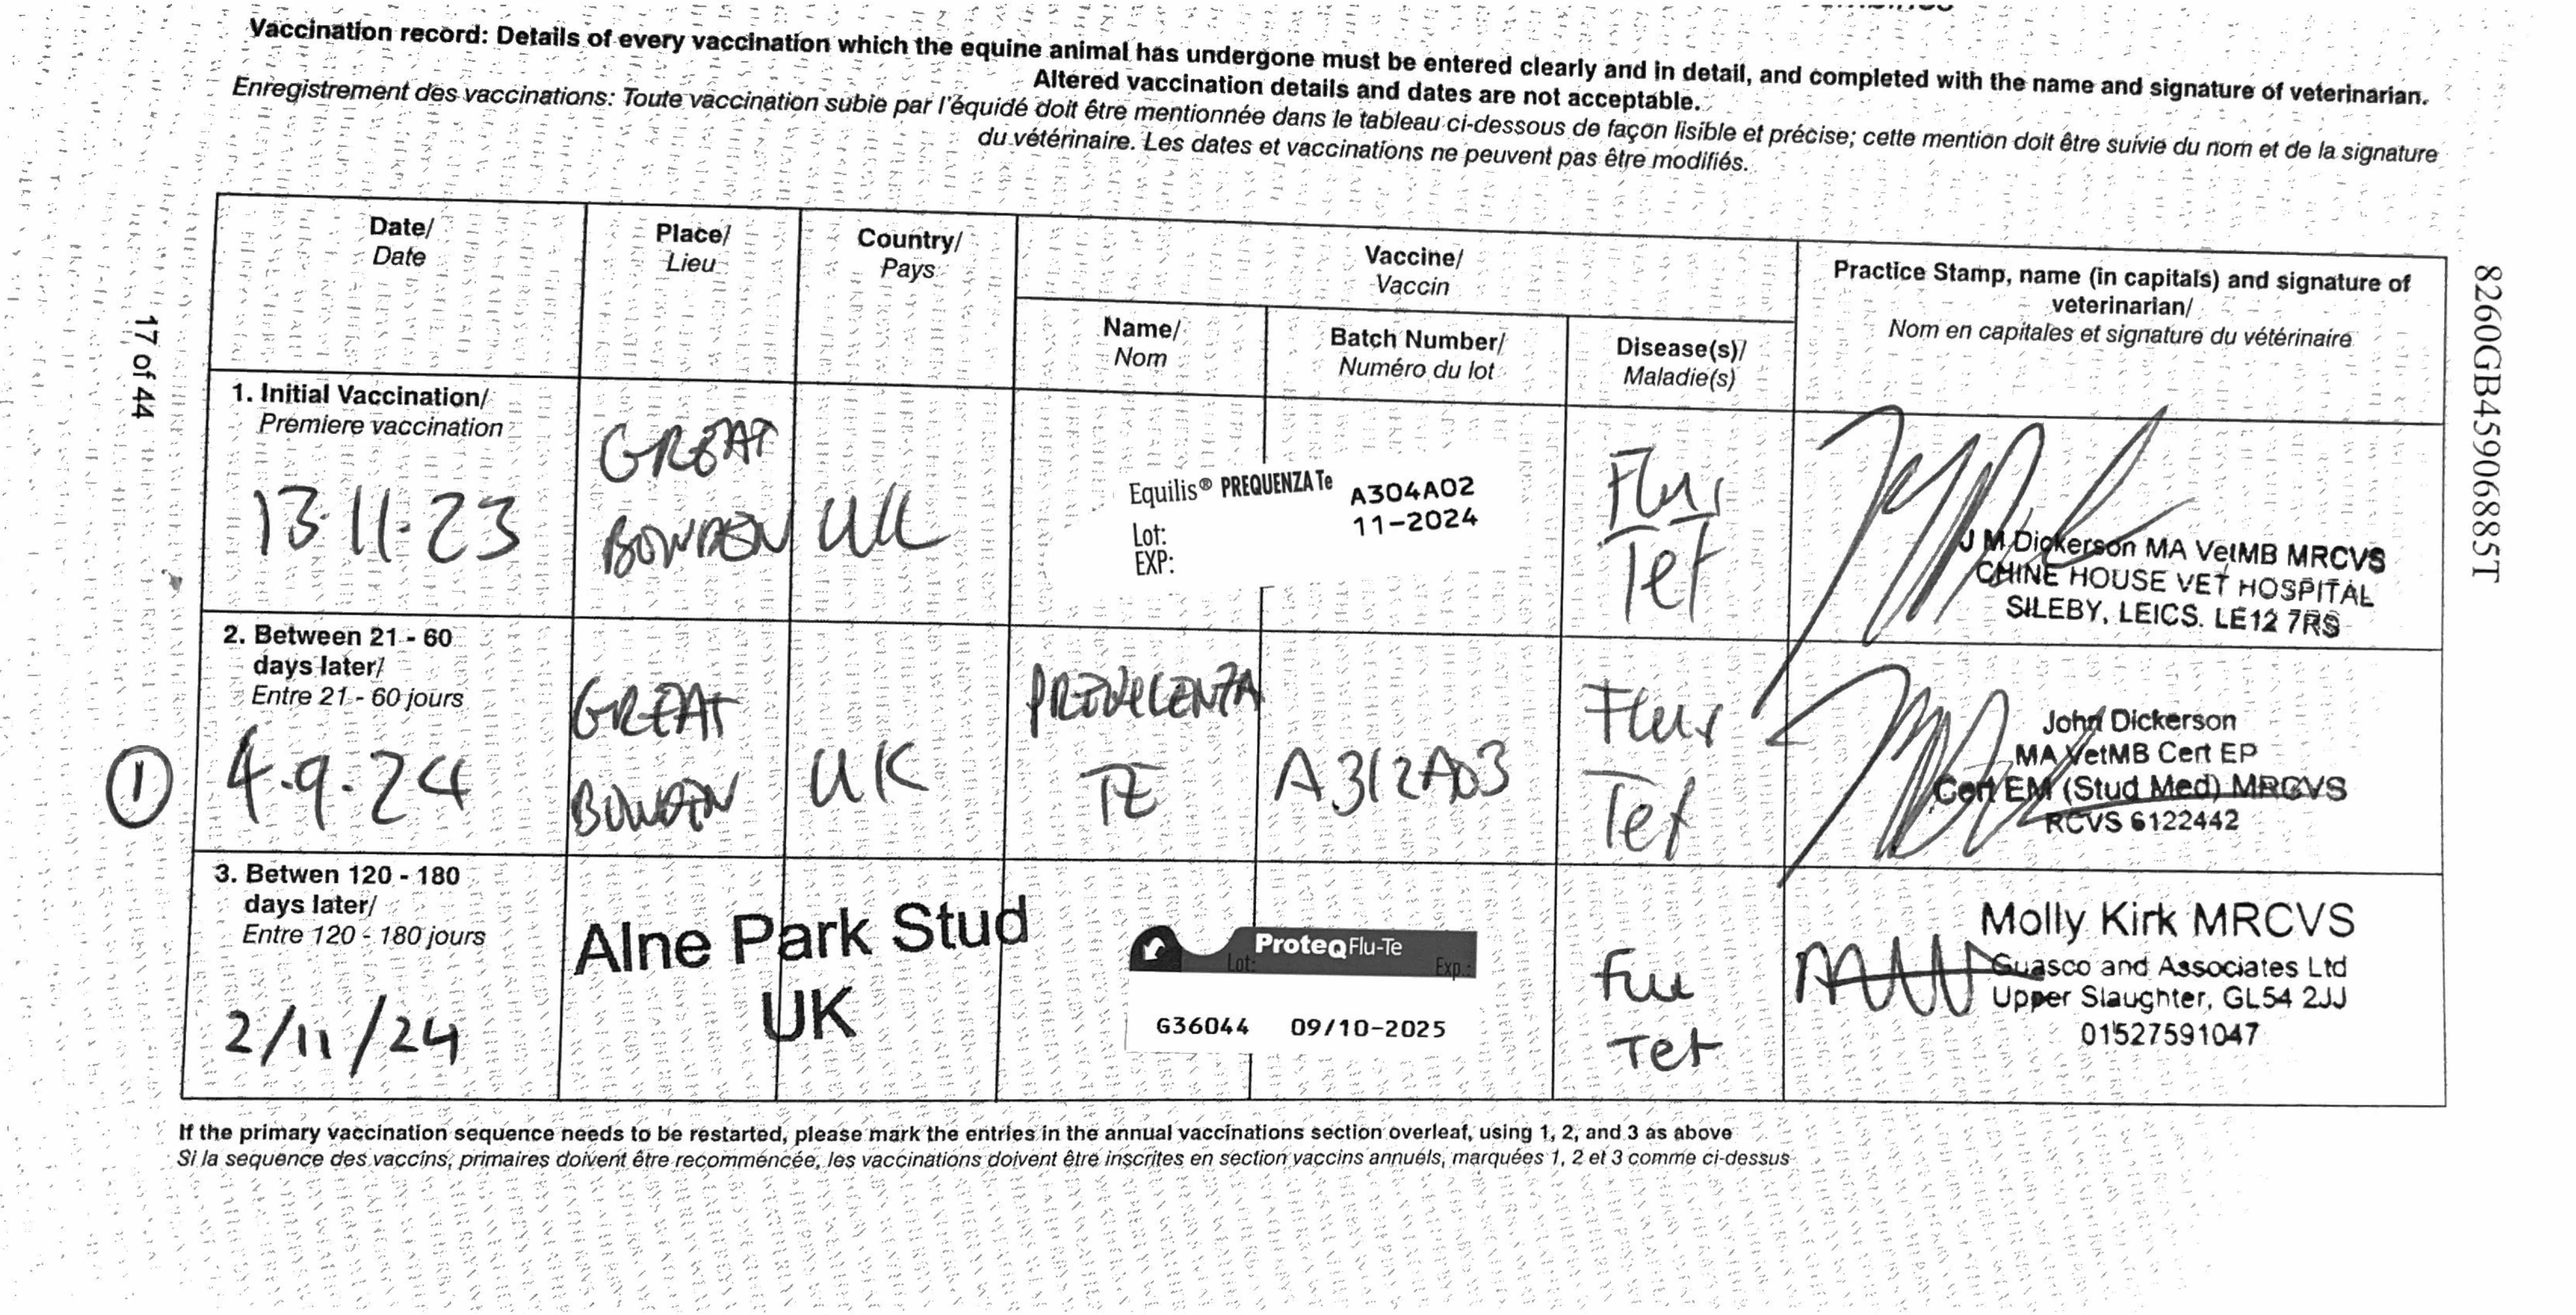 Vaccination record: Details of every vaccination which the equine animal has undergone must be entered clearly and in detail, and completed with the name and signature of veterinarian.
Altered vaccination details and dates are not acceptable.
Enregistrement des vaccinations: Toute vaccination subie par l'équidé doit être mentionnée dans le tableau ci-dessous de façon lisible et précise; cette mention doit être suivie du nom et de la signature
du vétérinaire. Les dates et vaccinations ne peuvent pas être modifiés.
17 of 44
8260GB459068885T
Date/
Date
Place/
Lieu
Country/
Pays
Vaccine/
Vaccin
Name/
Nom
Batch Number/
Numéro du lot
Disease(s)/
Maladie(s)
Practice Stamp, name (in capitals) and signature of
veterinarian/
Nom en capitales et signature du vétérinaire
1. Initial Vaccination/
Premiere vaccination
13.11.23
GREAT
BOWDEN
UK
Equilis® PREQUENZA Te
Lot:
EXP:
A304A02
11-2024
Flu
Tet
J M Dickerson MA VetMB MRCVS
CHINE HOUSE VET HOSPITAL
SILEBY, LEICS. LE12 7RS
2. Between 21 - 60
days later/
Entre 21 - 60 jours
1
4.9.24
GREAT
BOWDEN
UK
PREQUENZA
TE
A312A03
Flu
Tet
John Dickerson
MA VetMB Cert EP
Cert EM (Stud Med) MRCVS
RCVS 6122442
3. Betwen 120 - 180
days later/
Entre 120 - 180 jours
2/11/24
Alne Park Stud
UK
ProteqFlu-Te
Lot: Exp.:
G36044 09/10-2025
Flu
Tet
Molly Kirk MRCVS
Guasco and Associates Ltd
Upper Slaughter, GL54 2JJ
01527591047
If the primary vaccination sequence needs to be restarted, please mark the entries in the annual vaccinations section overleaf, using 1, 2, and 3 as above
Si la sequence des vaccins, primaires doivent être recommencée, les vaccinations doivent être inscrites en section vaccins annuels, marquées 1, 2 et 3 comme ci-dessus